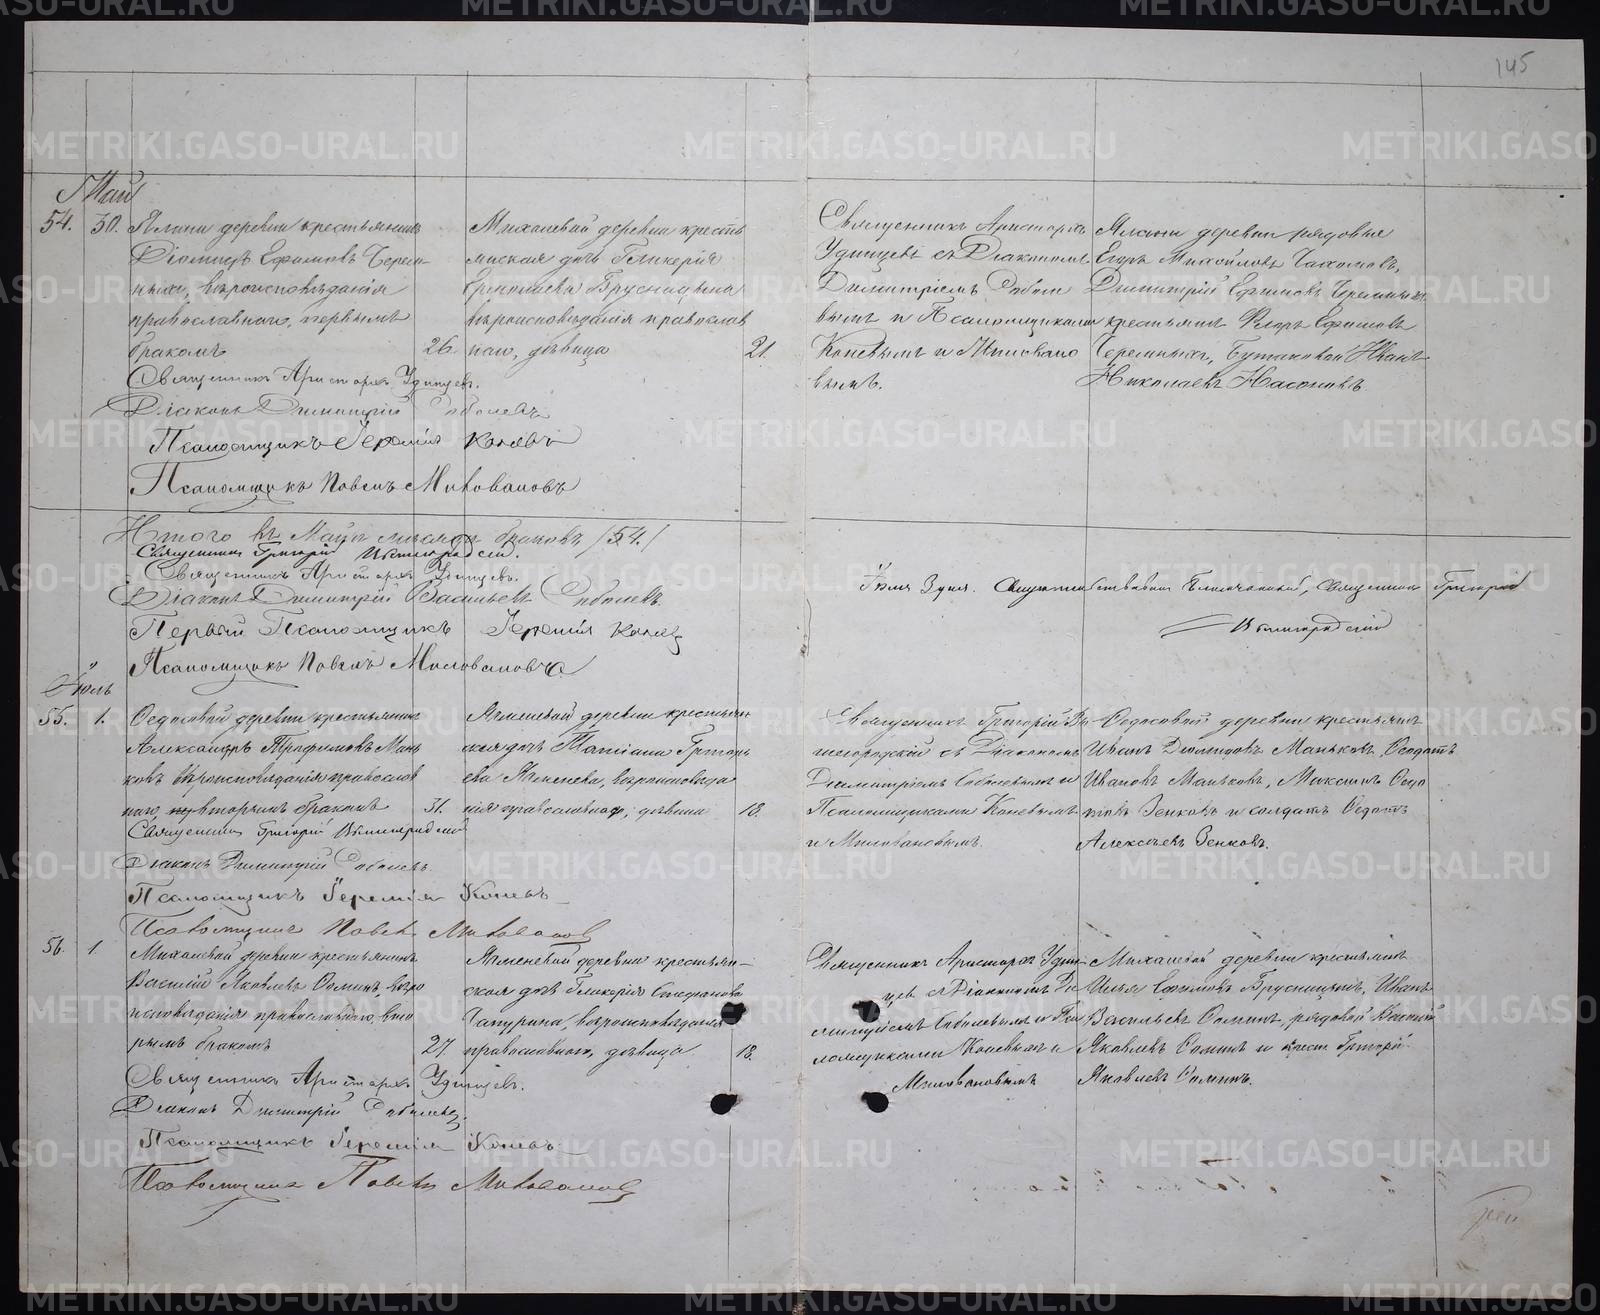 145
Май
54. 30. Ялани деревни крестьянинъ
Діомидъ Ефимовъ Черем-
ныхъ, вѣроисповѣданія
православнаго, первымъ
бракомъ 26.
Михалевой деревни кресть
янская дочь Гликерія
Брусницына
вѣроисповѣданія православ
наго, дѣвица 21.
Священникъ Аристархъ
Удинцевъ съ Діакономъ
Димитріемъ Соболе
вымъ и Псаломщиками
Коневымъ и Миловано
вымъ.
деревни рядовые
Егоръ Михайловъ Пахомовъ,
Димитрій Ефимовъ Черемныхъ
крестьяне Ефимовъ
Черемныхъ, Бутаковой Иванъ
Николаевъ Насоновъ.
Священникъ Аристархъ Удинцевъ.
Діаконъ Димитрій Соболевъ
Псаломщикъ Іеремія Коневъ
Псаломщикъ Павелъ Миловановъ
Итого въ Маѣ мѣсяцѣ браковъ /54./
Священникъ Григорій Вышегородскій.
Священникъ Аристархъ Удинцевъ.
Діаконъ Димитрій Васильевъ Соболевъ.
Первый Псаломщикъ Іеремія Коневъ
Псаломщикъ Павелъ Миловановъ
Іюля 3 дня. Священникъ Григорій
Вышегородскій
Іюль
55. 1. Федосовой деревни крестьянинъ
Александръ Трофимовъ Мань
ковъ вѣроисповѣданія православ
наго, вторымъ бракомъ 31.
Ячменевой деревни крестьян
ская дочь Татіана Григорь
ева Ячменева, вѣроисповѣда
нія православнаго, дѣвица 18.
Священникъ Григорій Вы
шегородскій съ Діакономъ
Димитріемъ Соболевымъ и
Псаломщиками Коневымъ
и Миловановымъ.
Федосовой деревни крестьяне
Иванъ Діомидовъ Маньковъ, Федотъ
Ивановъ Маньковъ, Максимъ Федо
товъ Зенковъ и солдатъ Федотъ
Алексѣевъ Зенковъ.
Священникъ Григорій Вышегородскій
Діаконъ Димитрій Соболевъ.
Псаломщикъ Іеремія Коневъ
Псаломщикъ Павелъ Миловановъ
56. 1. Михалевой деревни крестьянинъ
Василій Яковлевъ Фоминъ, вѣро
исповѣданія православнаго, вто
рымъ бракомъ 27.
Ячменевой деревни крестьян-
ская дочь Гликерія Стефанова
Чапурина, вѣроисповѣданія
православнаго, дѣвица 18.
Священникъ Аристархъ Удин-
цев съ Діакономъ Ди
митріемъ Соболевымъ и Пса
ломщиками Коневымъ и
Миловановымъ
Михалевой деревни крестьяне
Илья Ефимовъ Брусницынъ, Иванъ
Васильевъ Фоминъ, рядовой
Яковлевъ Фоминъ и крест. Григорій
Яковлевъ Фоминъ.
Священникъ Аристархъ Удинцевъ.
Діаконъ Димитрій Соболевъ.
Псаломщикъ Іеремія Коневъ
Псаломщикъ Павелъ Миловановъ
METRIKI.GASO-URAL.RU